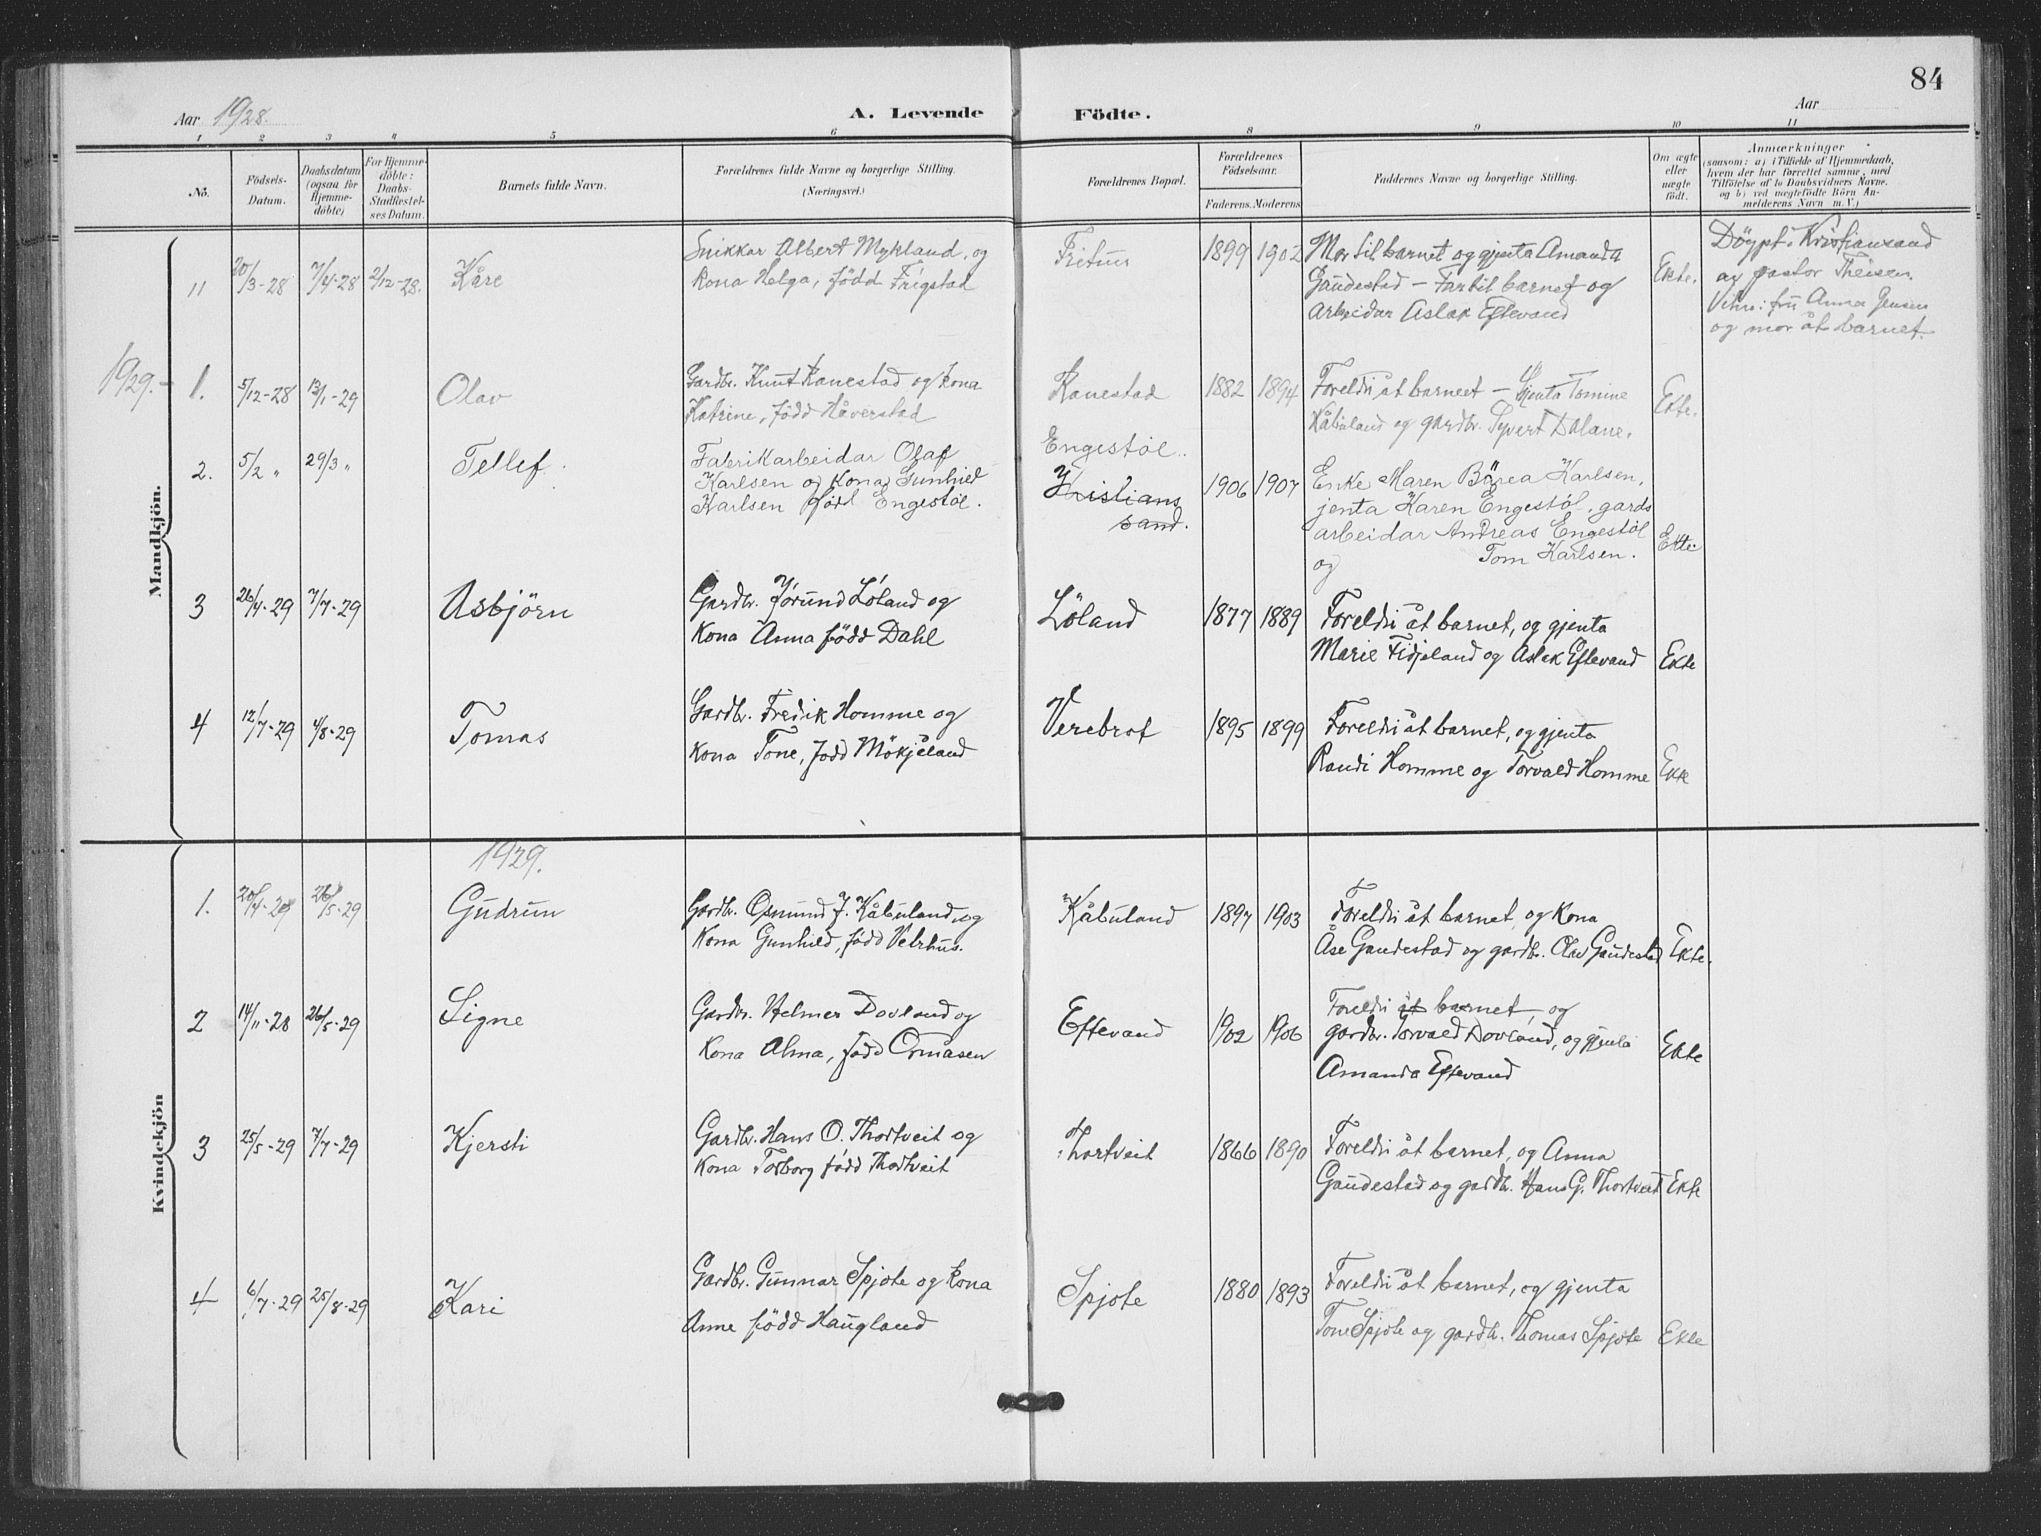 84
Aar 1928.
A. Levende Födte.
Aar
1 2 3 4 5 6 8 9 10 11
No.
Födsels-
Datum.
Daabsdatum
(ogsaa for
Hjemme-
döbte)
For Hjemme-
döbte:
Daabs-
Stadfæstel-
ses Datum.
Barnets fulde Navn.
Forældrenes fulde Navne og borgerlige Stilling.
(Næringsvei.)
Forældrenes Bopæl.
Forældrenes
Födselsaar.
Faderens. Moderens.
Faddernes Navne og borgerlige Stilling.
Om ægte
eller
uægte
födt.
Anmærkninger
(saasom: a) i Tilfælde af Hjemmedaab,
hvem der har forrettet samme, med
Tilföielse af to Daabsvidners Navne.
og b) ved uægtefödte Börn An-
melderens Navn m. V.)
Mandkjön.
11 20/3-28 7/4-28 2/12-28. Kåre
Snikkar Albert Mykland, og
kona Helga, född Frigstad
Fritun 1899 1902
Mor til barnet og gjenta Amanda
Gaudestad - Far til barnet og
arbeidar Aslak Eftevand
Ekte.
Döypt i Kristiansand
av pastor Theisen.
Vitn: fru Anna Jensen
og mor åt barnet.
1929.- 1. 5/12-28 13/1-29 Olav
Gardbr. Knut Kanestad og kona
Katrine, född Håverstad
Kanestad 1882 1894
Foreldri åt barnet - Gjenta Tomine
Kåbuland og gardbr. Syvert Dalane.
Ekte.
2. 5/2 " 29/3 " Tellef.
Fabrikarbeidar Olaf
Karlsen og Kona Gunhild
Karlsen född Engestöl.
Engestöl.
Kristians
sand.
1906 1907
Enke Maren Börea Karlsen,
jenta Karen Engestöl, gards
arbeidar Andreas Engestöl
og Tom Karlsen.
Ekte.
3 26/4-29 7/7-29 Asbjörn
Gardbr. Jörund Löland og
Kona Anna född Dahl
Löland 1877 1889
Foreldri åt barnet, og gjenta
Marie Fidjeland og Aslak Eftevand
Ekte
4 12/7-29 4/8-29 Tomas
Gardbr. Fredrik Homme og
kona Tone, född Mökjåland
Verebrot 1895 1899
Foreldri åt barnet, og gjenta
Randi Homme og Torvald Homme
Ekte
Kvindekjön
1929.
1. 20/4-29 26/5-29 Gudrun
Gardbr. Osmund J. Kåbuland og
Kona Gunhild, född Vetrhus.
Kåbuland 1897 1903
Foreldri åt barnet, og Kona
Åse Gaudestad og gardbr. Olav Gaudestad
Ekte.
2 14/11-28 26/5-29 Signe
Gardbr. Helmer Dovland og
Kona Alma, född Omåsen
Eftevand 1902 1906
Foreldri åt barnet, og
gardbr. Torvald Dovland, og gjenta
Amanda Eftevand
Ekte
3 25/5-29 7/7-29 Kjersti
Gardbr. Hans O. Thortveit og
Kona Torborg född Thortveit
Thortveit 1866 1890
Foreldri åt barnet, og Anna
Gaudestad og gardbr. Hans G. Thortveit
Ekte
4 6/7-29 25/8-29 Kari
Gardbr. Gunnar Spjote og kona
Anne född Haugland
Spjote 1880 1893
Foreldri åt barnet, og gjenta
Tone Spjote og gardbr. Thomas Spjote
Ekte